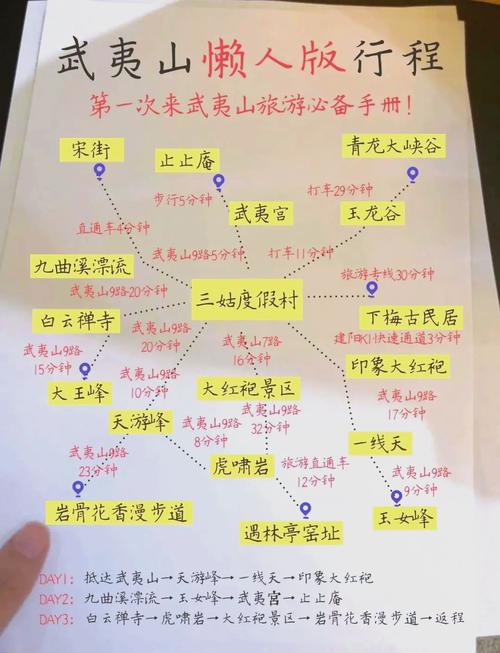 武夷山懒人版行程
第一次来武夷山旅游必备手册!
宋街
止止庵
青龙大峡谷
步行5分钟
打车29分钟
直通车4分钟
武夷宫
玉龙谷
武夷山9路5分钟
打车11分钟
九曲溪漂流
旅游专线30分钟
武夷山9路20分钟
三姑度假村
白云禅寺
下梅古民居
武夷山9路
15分钟
武夷山9路
20分钟
武夷山7路
16分钟
建阳K1快速通道3分钟
印象大红袍
大王峰
武夷山9路
10分钟
大红袍景区
武夷山9路
17分钟
天游峰
武夷山9路
8分钟
武夷山9路
32分钟
一线天
武夷山9路
23分钟
虎啸岩
旅游直通车
12分钟
武夷山9路
9分钟
岩骨花香漫步道
遇林亭窑址
玉女峰
DAY1: 抵达武夷山→天游峰→一线天→印象大红袍
DAY2: 九曲溪漂流→玉女峰→武夷宫→止止庵
DAY3: 白云禅寺→虎啸岩→大红袍景区→岩骨花香漫步道→返程